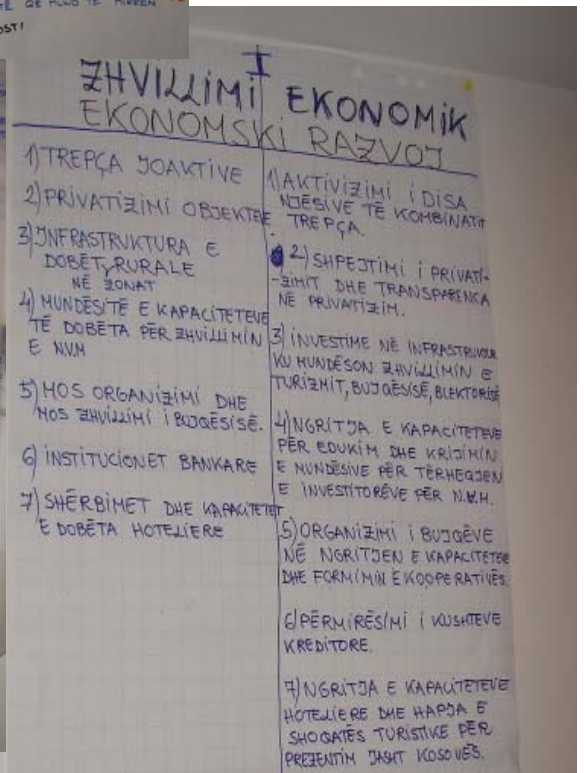 TË QË MUND TË MIRREN
OSTI
I
ZHVILLIMI EKONOMIK
EKONOMSKI RAZVOJ
1) TREPÇA JOAKTIVE
2) PRIVATIZIMI OBJEKTEVE.
3) INFRASTRUKTURA E
DOBËT, RURALE
NË ZONAT
4) MUNDËSITË E KAPACITETEVE
TË DOBËTA PËR ZHVILLIMIN
E N.V.M
5) MOS ORGANIZIMI DHE
MOS ZHVILLIMI I BUJQËSISË.
6) INSTITUCIONET BANKARE
7) SHËRBIMET DHE KAPACITETET
E DOBËTA HOTELIERE
1) AKTIVIZIMI I DISA
NJËSIVE TË KOMBINATIT
TREPÇA.
2) SHPEJTIMI I PRIVATI-
-ZIMIT DHE TRANSPARENCA
NË PRIVATIZIM.
3) INVESTIME NË
KU MUNDËSON ZHVILLIMIN E
TURIZMIT, BUJQËSISË, BLEKTORISË
4) NGRITJA E KAPACITETEVE
PËR EDUKIM DHE KRIJIMIN
E MUNDËSIVE PËR TËRHEQJEN
E INVESTITORËVE PËR N.V.M.
5) ORGANIZIMI I BUJQËVE
NË NGRITJEN E KAPACITETEVE
DHE FORMIMIN E KOOPERATIVËS.
6) PËRMIRËSIMI I KUSHTEVE
KREDITORE.
7) NGRITJA E KAPACITETEVE
HOTELIERE DHE HAPJA E
SHOQATËS TURISTIKE PËR
PREZENTIM JASHT KOSOVËS.